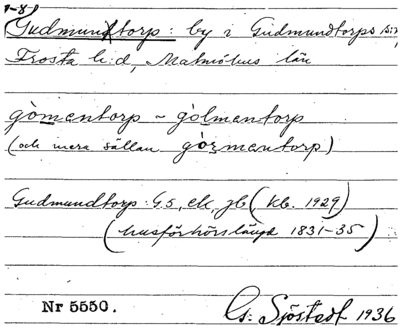 Gudmuntorp: by i Gudmundtorps sn,
Frosta hd, Malmöhus län
gòmentorp ~ gòlmantorp
(och mera sällan gòrmantorp)
Gudmundtorp: GS, ek, jb (kb. 1929)
(husförhörslängd 1831-35)
Nr 5550.
G. Sjöstedt 1936